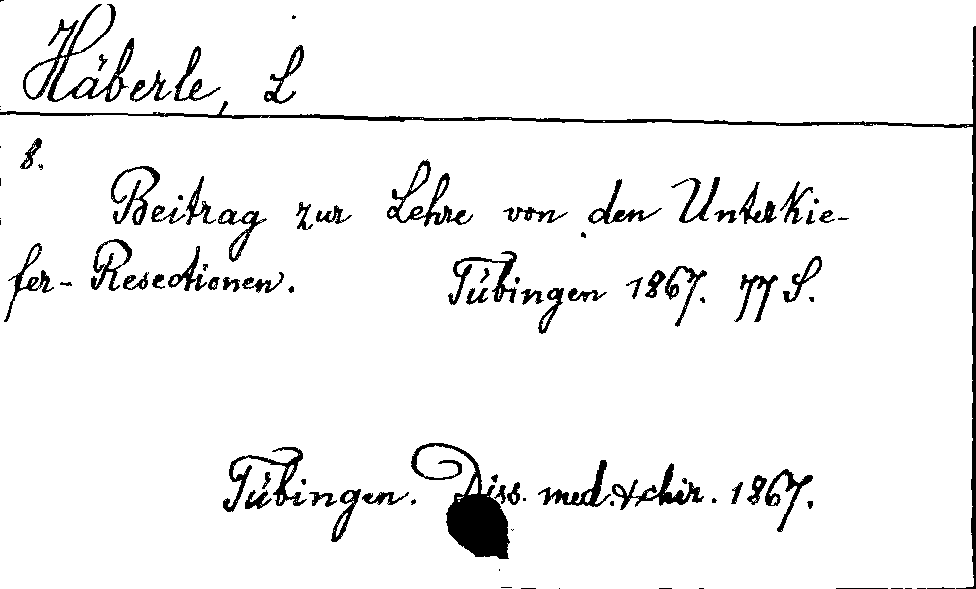 Häberle, L
8.
Beitrag zur Lehre von den Unterkie-
fer-Resectionen. Tübingen 1867. 77 S.
Tübingen. Diss. med. & chir. 1867.